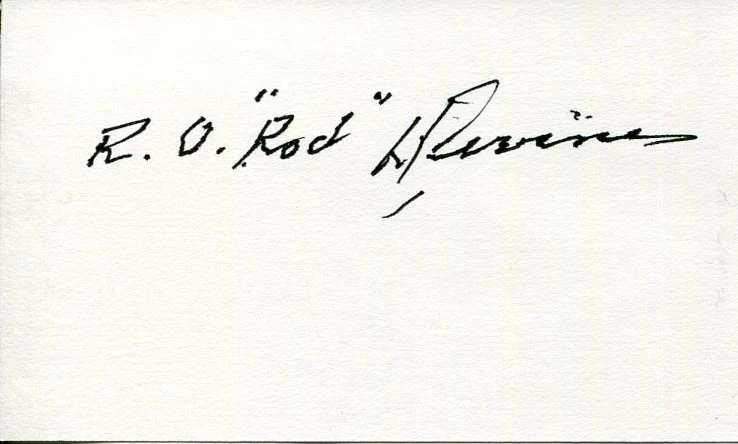 R. O. "Rod" Devine